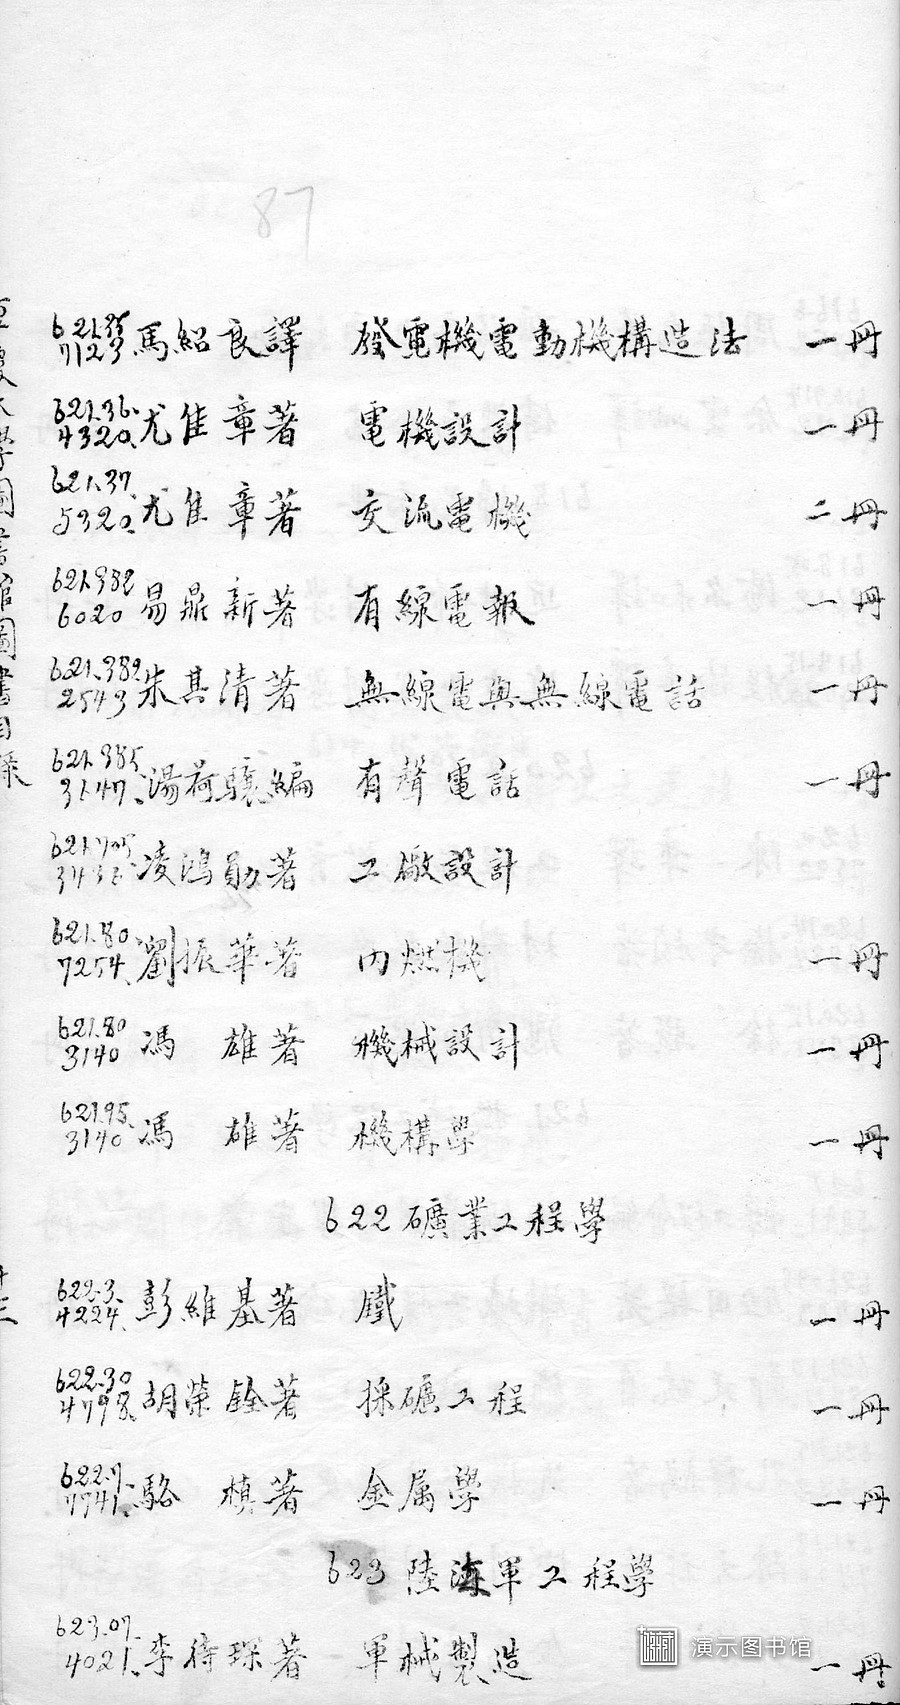 87
621.35 馬紹良譯 發電機電動機構造法 一冊
7123
621.36 尤佳章著 電機設計 一冊
4320
621.37 尤佳章著 交流電機 二冊
5320
621.382 易鼎新著 有線電報 一冊
6020
621.382 朱其清著 無線電與無線電話 一冊
2543
621.385 湯荷驤編 有聲電話 一冊
3147
621.705 凌鴻勛著 工廠設計
621.80 劉振華著 內燃機 一冊
7254
621.80 馮 雄著 機械設計 一冊
3140
621.95 馮 雄著 機構學 一冊
3140
622 礦業工程學
622.3 彭維基著 鐵 一冊
4224
622.30 胡榮銓著 採礦工程 一冊
4798
622.7 駱 楨著 金属學 一冊
7741
623 陸海軍工程學
623.07 李待琛著 軍械製造 一冊
4021
大學圖書館圖書目錄
演示图书馆